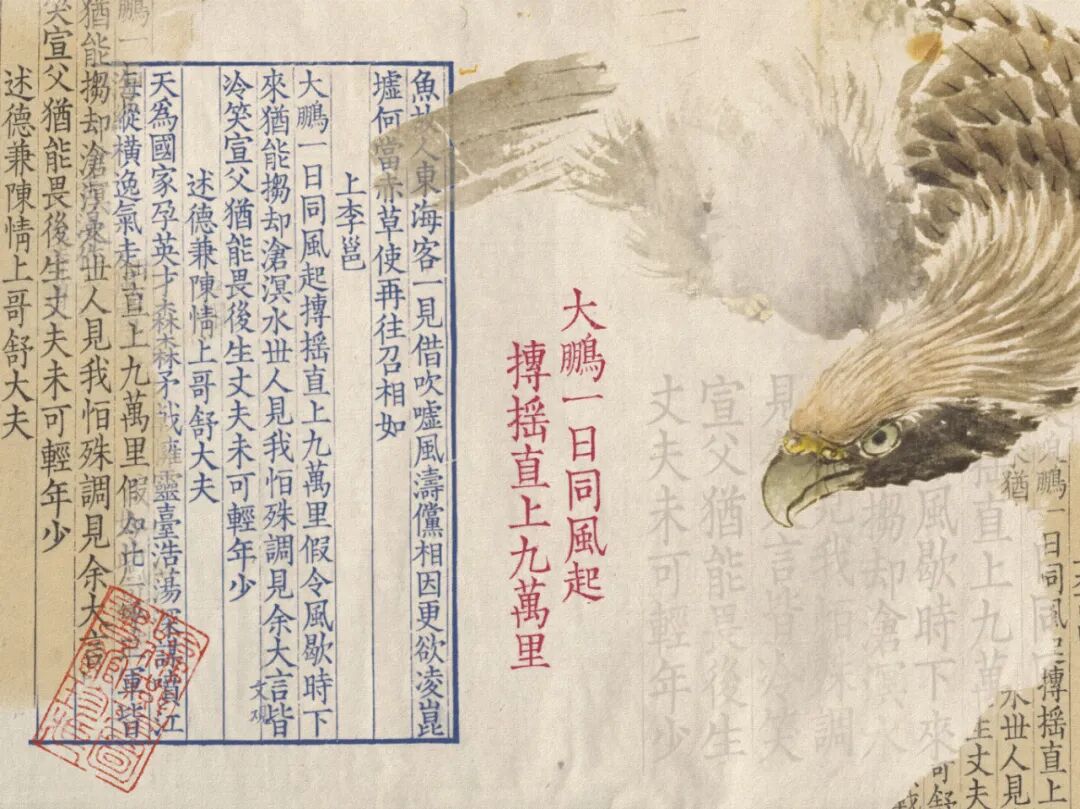 鵬一日同風起摶搖直上
水世人見
風歇時下來
直上九萬
搊却滄溟水
宣父猶能畏後生
丈夫未可輕年少
大鵬一日同風起
摶搖直上九萬里
魚故人東海客一見借吹噓風濤儻相因更欲凌崑
墟何當赤草使再往召相如
上李邕
大鵬一日同風起摶搖直上九萬里假令風歇時下
來猶能搊却滄溟水世人見我怕殊調見余大言皆
冷笑宣父猶能畏後生丈夫未可輕年少
述德兼陳情上哥舒大夫
天為國家孕英才森森矛戟擁靈臺浩蕩深謀噴江
海縱橫逸氣走直上九萬里假如此軍皆
鵬一
猶能搊却滄溟水世人見我怕殊調見余大言
笑宣父猶能畏後生丈夫未可輕年少
述德兼陳情上哥舒大夫